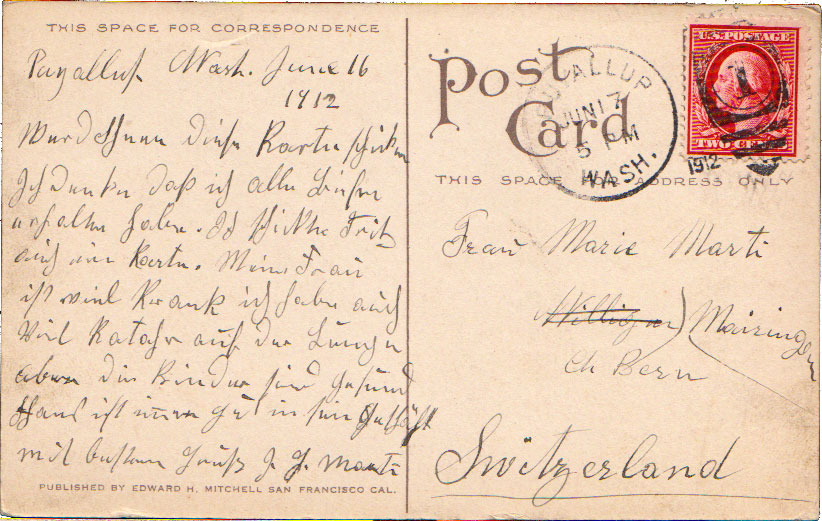 THIS SPACE FOR CORRESPONDENCE
Puyallup Wash. June 16
1912
Werd Ihnen diese Karte schicken
Ich denke daß ich alle Briefe
erhalten habe. Ich schickte Fritz
auch eine Karte. Meine Frau
ist viel Krank ich habe auch
Viel Katahr auf der Lungen
aber die Kinder sind gesund
Hans ist immer gut in sein Geschäft
mit besten Grüße J. G. Marti
PUBLISHED BY EDWARD H. MITCHELL SAN FRANCISCO CAL.
Post
Card
PUYALLUP
JUN 17
5 PM
WASH.
1912
U.S. POSTAGE
TWO CENTS
1
THIS SPACE FOR ADDRESS ONLY
Frau Marie Marti
Willigen) Meiringen
Ct Bern
Switzerland